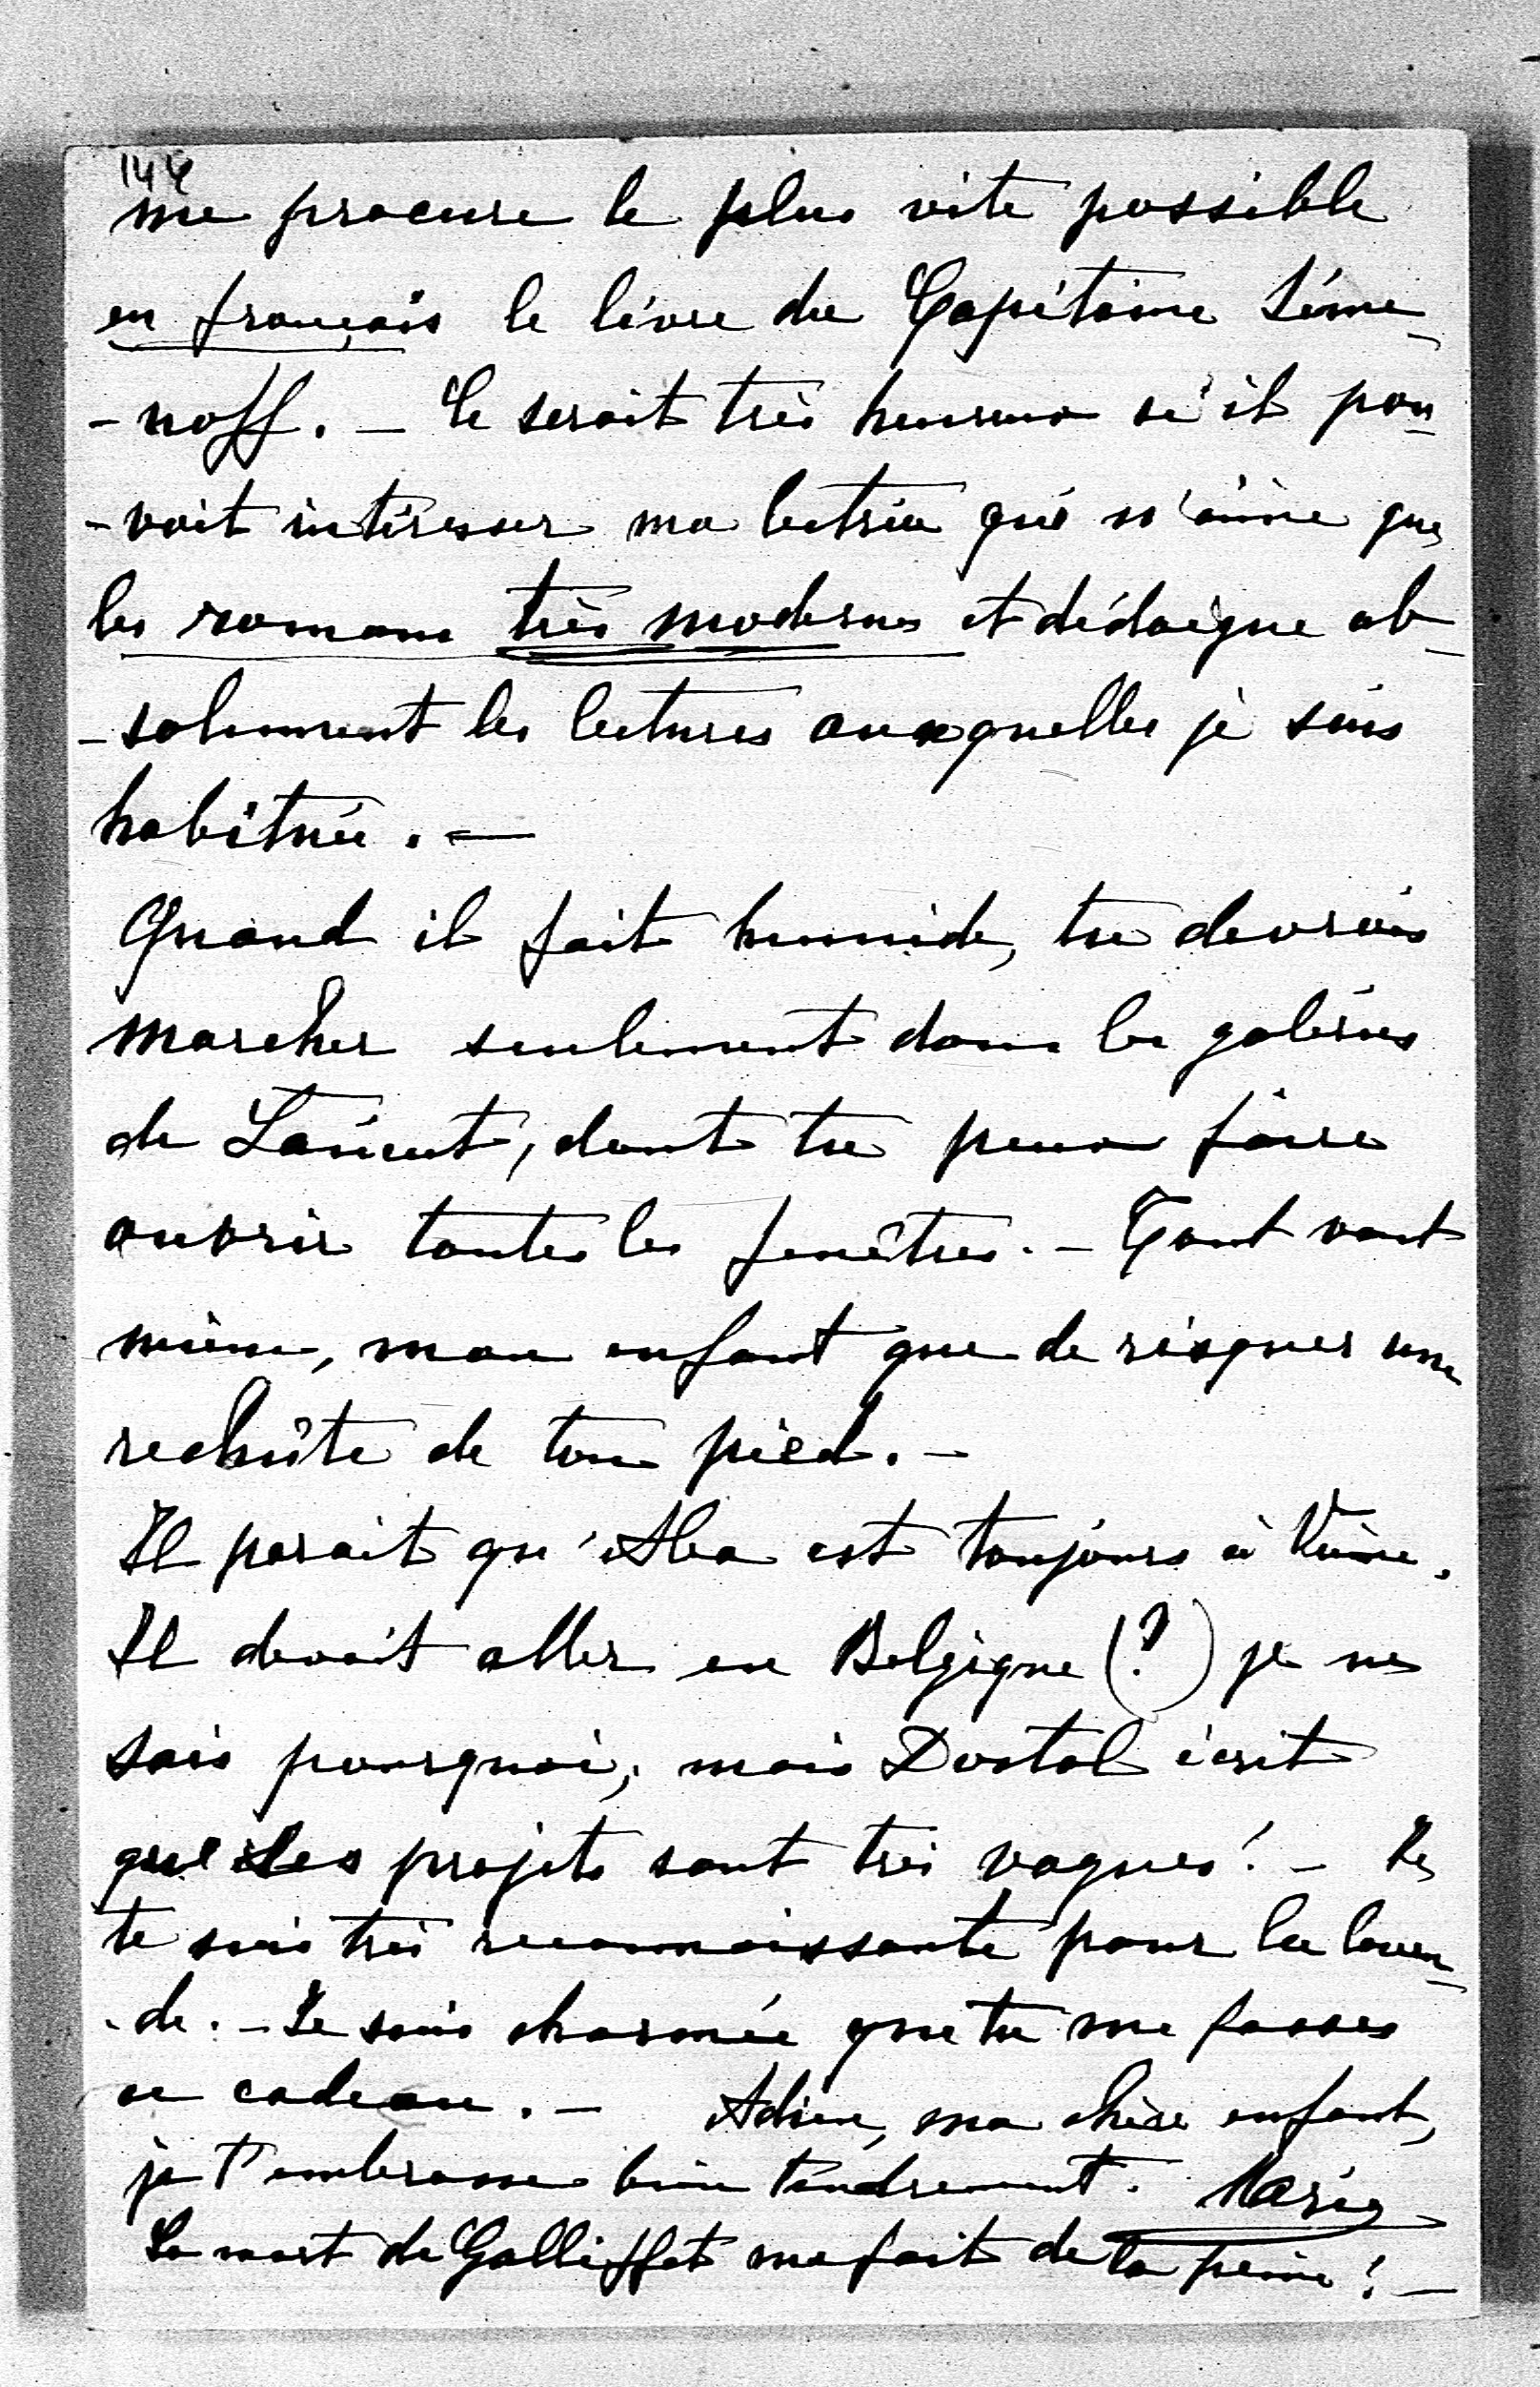 144
me procure le plus vite possible
en français le livre du Capitaine Séme-
-noff. – Ce serait très heureux si il pou-
-vait intéresser ma lectrice qui n'aime que
les romans très modernes et dédaigne ab-
-solument les lectures auxquelles je suis
habituée. –
Quand il fait humide, tu devrais
marcher seulement dans les galeries
de Lancut, dont tu peux faire
ouvrir toutes les fenêtres. – Tout vaut
mieux, mon enfant que de risquer une
rechûte de ton pied. –
Il parait qu'Alba est toujours à Vienne.
Il devait aller en Belgique (?) je ne
sais pourquoi, mais Dostal écrit
que ses projets sont très vagues! – Je
te suis très reconnaissante pour la lavan-
-de. – Je suis charmée que tu me fasses
ce cadeau. – Adieu, ma chère enfant,
je t'embrasse bien tendrement. Marie
La mort de Galliffet me fait de la peine! –